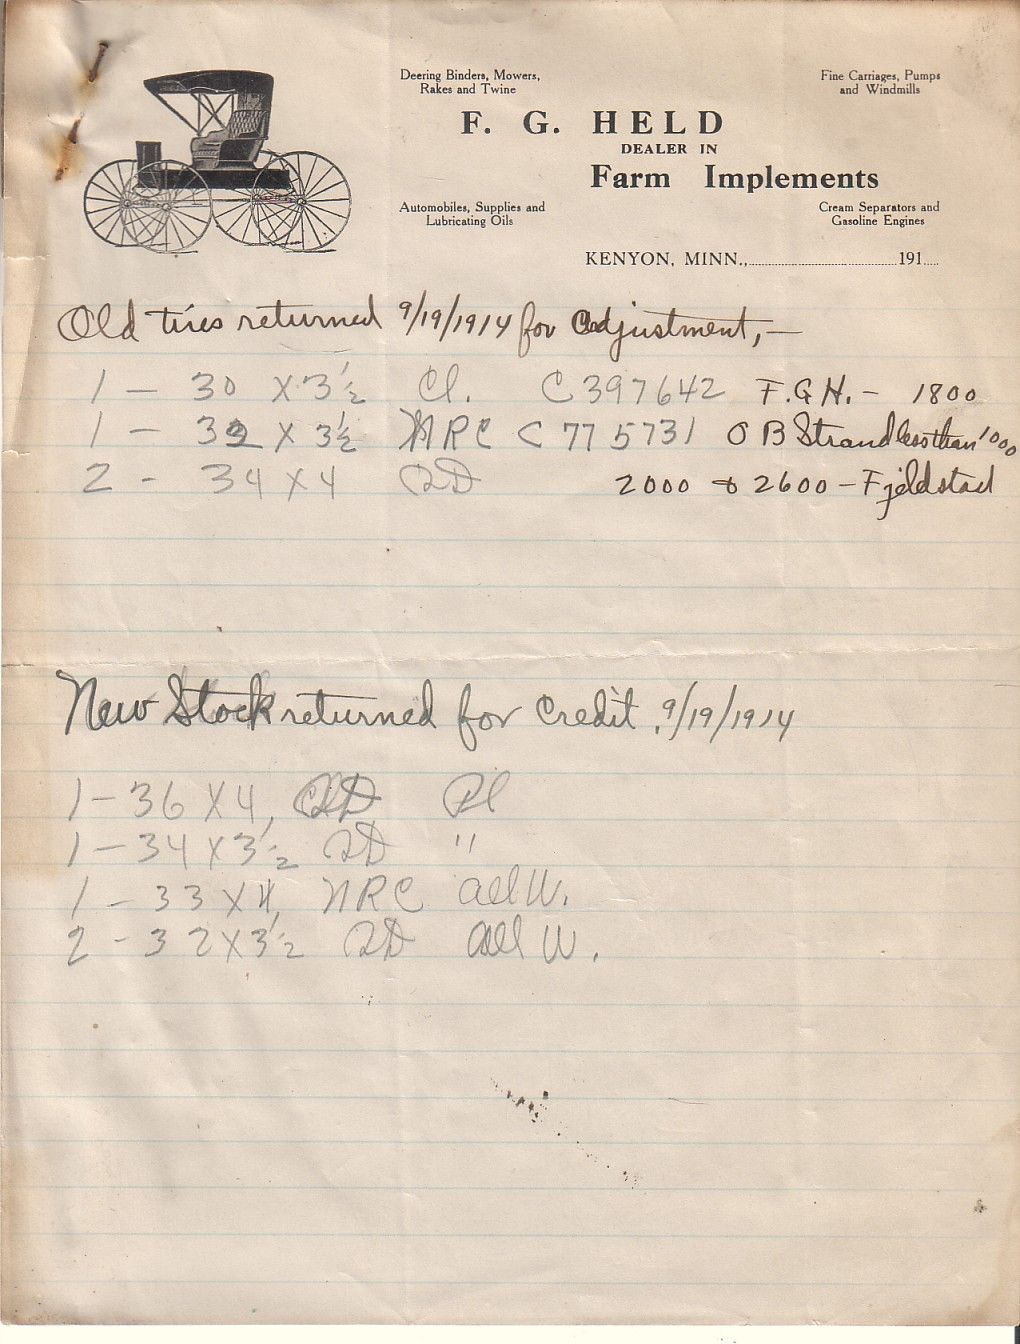 Deering Binders, Mowers,
Rakes and Twine
Fine Carriages, Pumps
and Windmills
F. G. HELD
DEALER IN
Farm Implements
Automobiles, Supplies and
Lubricating Oils
Cream Separators and
Gasoline Engines
KENYON, MINN.,..............................191.....
Old tires returned 9/19/1914 for adjustment,—
1 — 30 X 3½ Cl. C397642 F.G.H. — 1800
1 — 32 X 3½ NRC C775731 O B Strand less than 1000
2 - 34 X 4 QD 2000 & 2600 — Fjeldstad
New Stock returned for Credit. 9/19/1914
1 — 36 X 4, QD Pl
1 — 34 X 3½ QD "
1 — 33 X 4, NRC all W.
2 — 32 X 3½ QD all W.